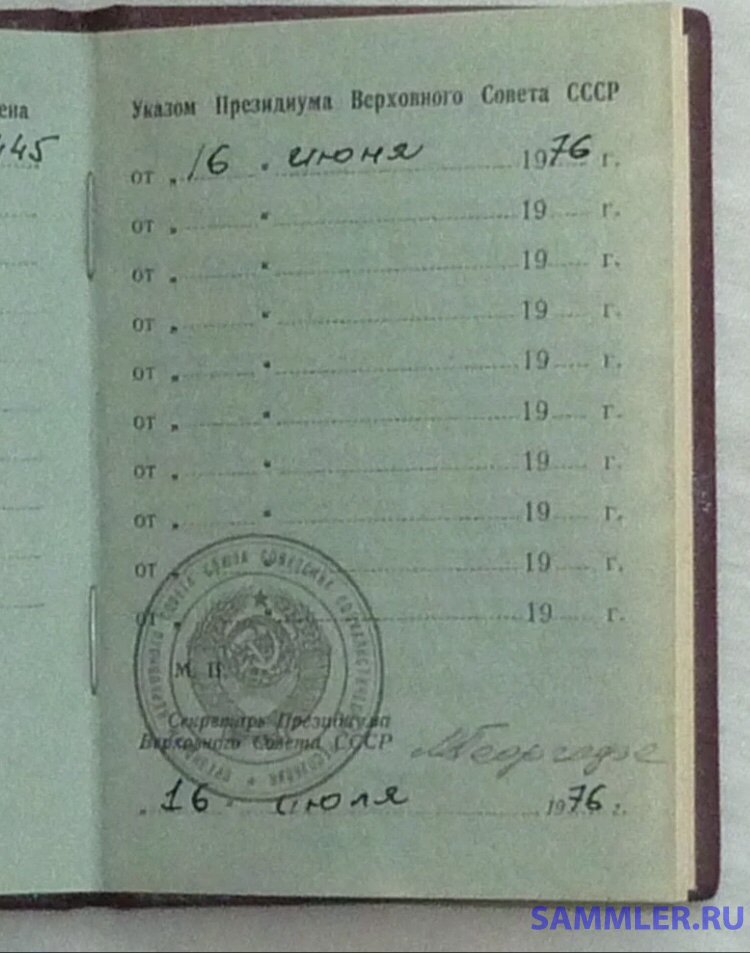 ена
445
Указом Президиума Верховного Совета СССР
от „ 16 “ июня 1976 г.
от „ “ 19 г.
от „ “ 19 г.
от „ “ 19 г.
от „ “ 19 г.
от „ “ 19 г.
от „ “ 19 г.
от „ “ 19 г.
от „ “ 19 г.
от „ “ 19 г.
М. П.
Секретарь Президиума
Верховного Совета СССР
МГеоргадзе
„ 16 “ июля 1976 г.
ВЕРХОВНОГО СОВЕТА СОЮЗА СОВЕТСКИХ СОЦИАЛИСТИЧЕСКИХ
SAMMLER.RU